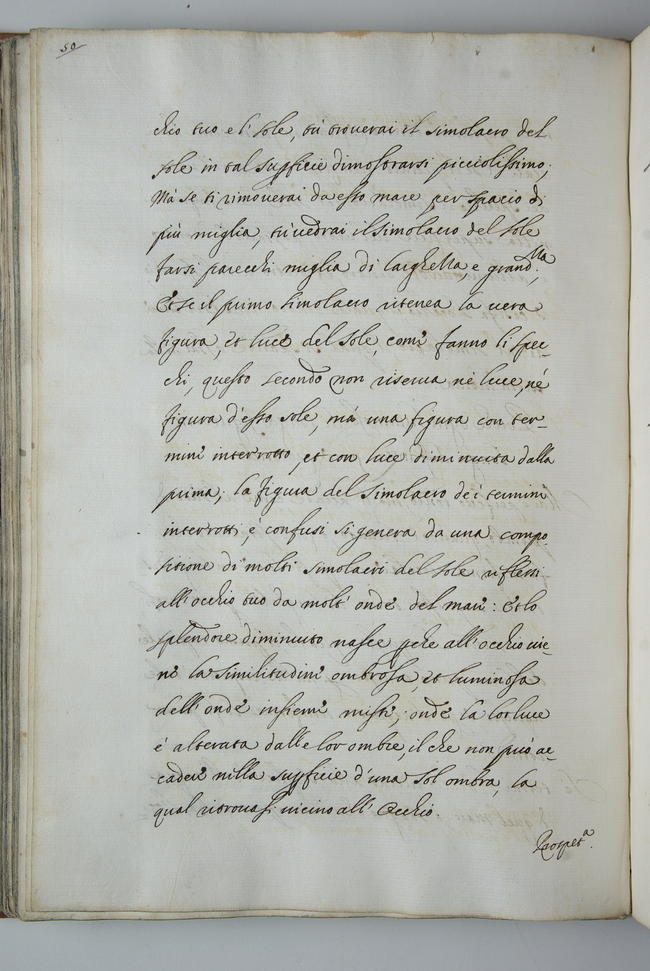 50
chio tuo e l' sole, tù trouerai il simolacro del
sole in tal supficie dimostrarsi picciolissimo;
Mà se ti rimouerai da esso mare, per spacio di
più miglia, tù uedrai il simolacro del sole
farsi parecchi miglia di larghezza, e grand.zza
Et se il primo simolacro ritenea la uera
figura, et luce del sole, come fanno li spec-
chi, questo secondo non riserua nè luce, nè
figura d'esso sole, mà una figura con ter-
mini interrotto, et con luce diminuita dalla
prima; la figura del simolacro de i termini
interrotti, e confusi si genera da una compo
sitione di molti simolacri del sole riflessi
all'occhio tuo da molt' onde del mare: Et lo
splendore diminuito nasce pche all'occhio uie-
ne la similitudine ombrosa, et luminosa
dell'onde insieme miste, onde la lor luce
è alterata dalle lor ombre, il che non può ac-
cadere nella supficie d'una sol ombra, la
qual ritrouasi uicino all'occhio.
Prospet.a